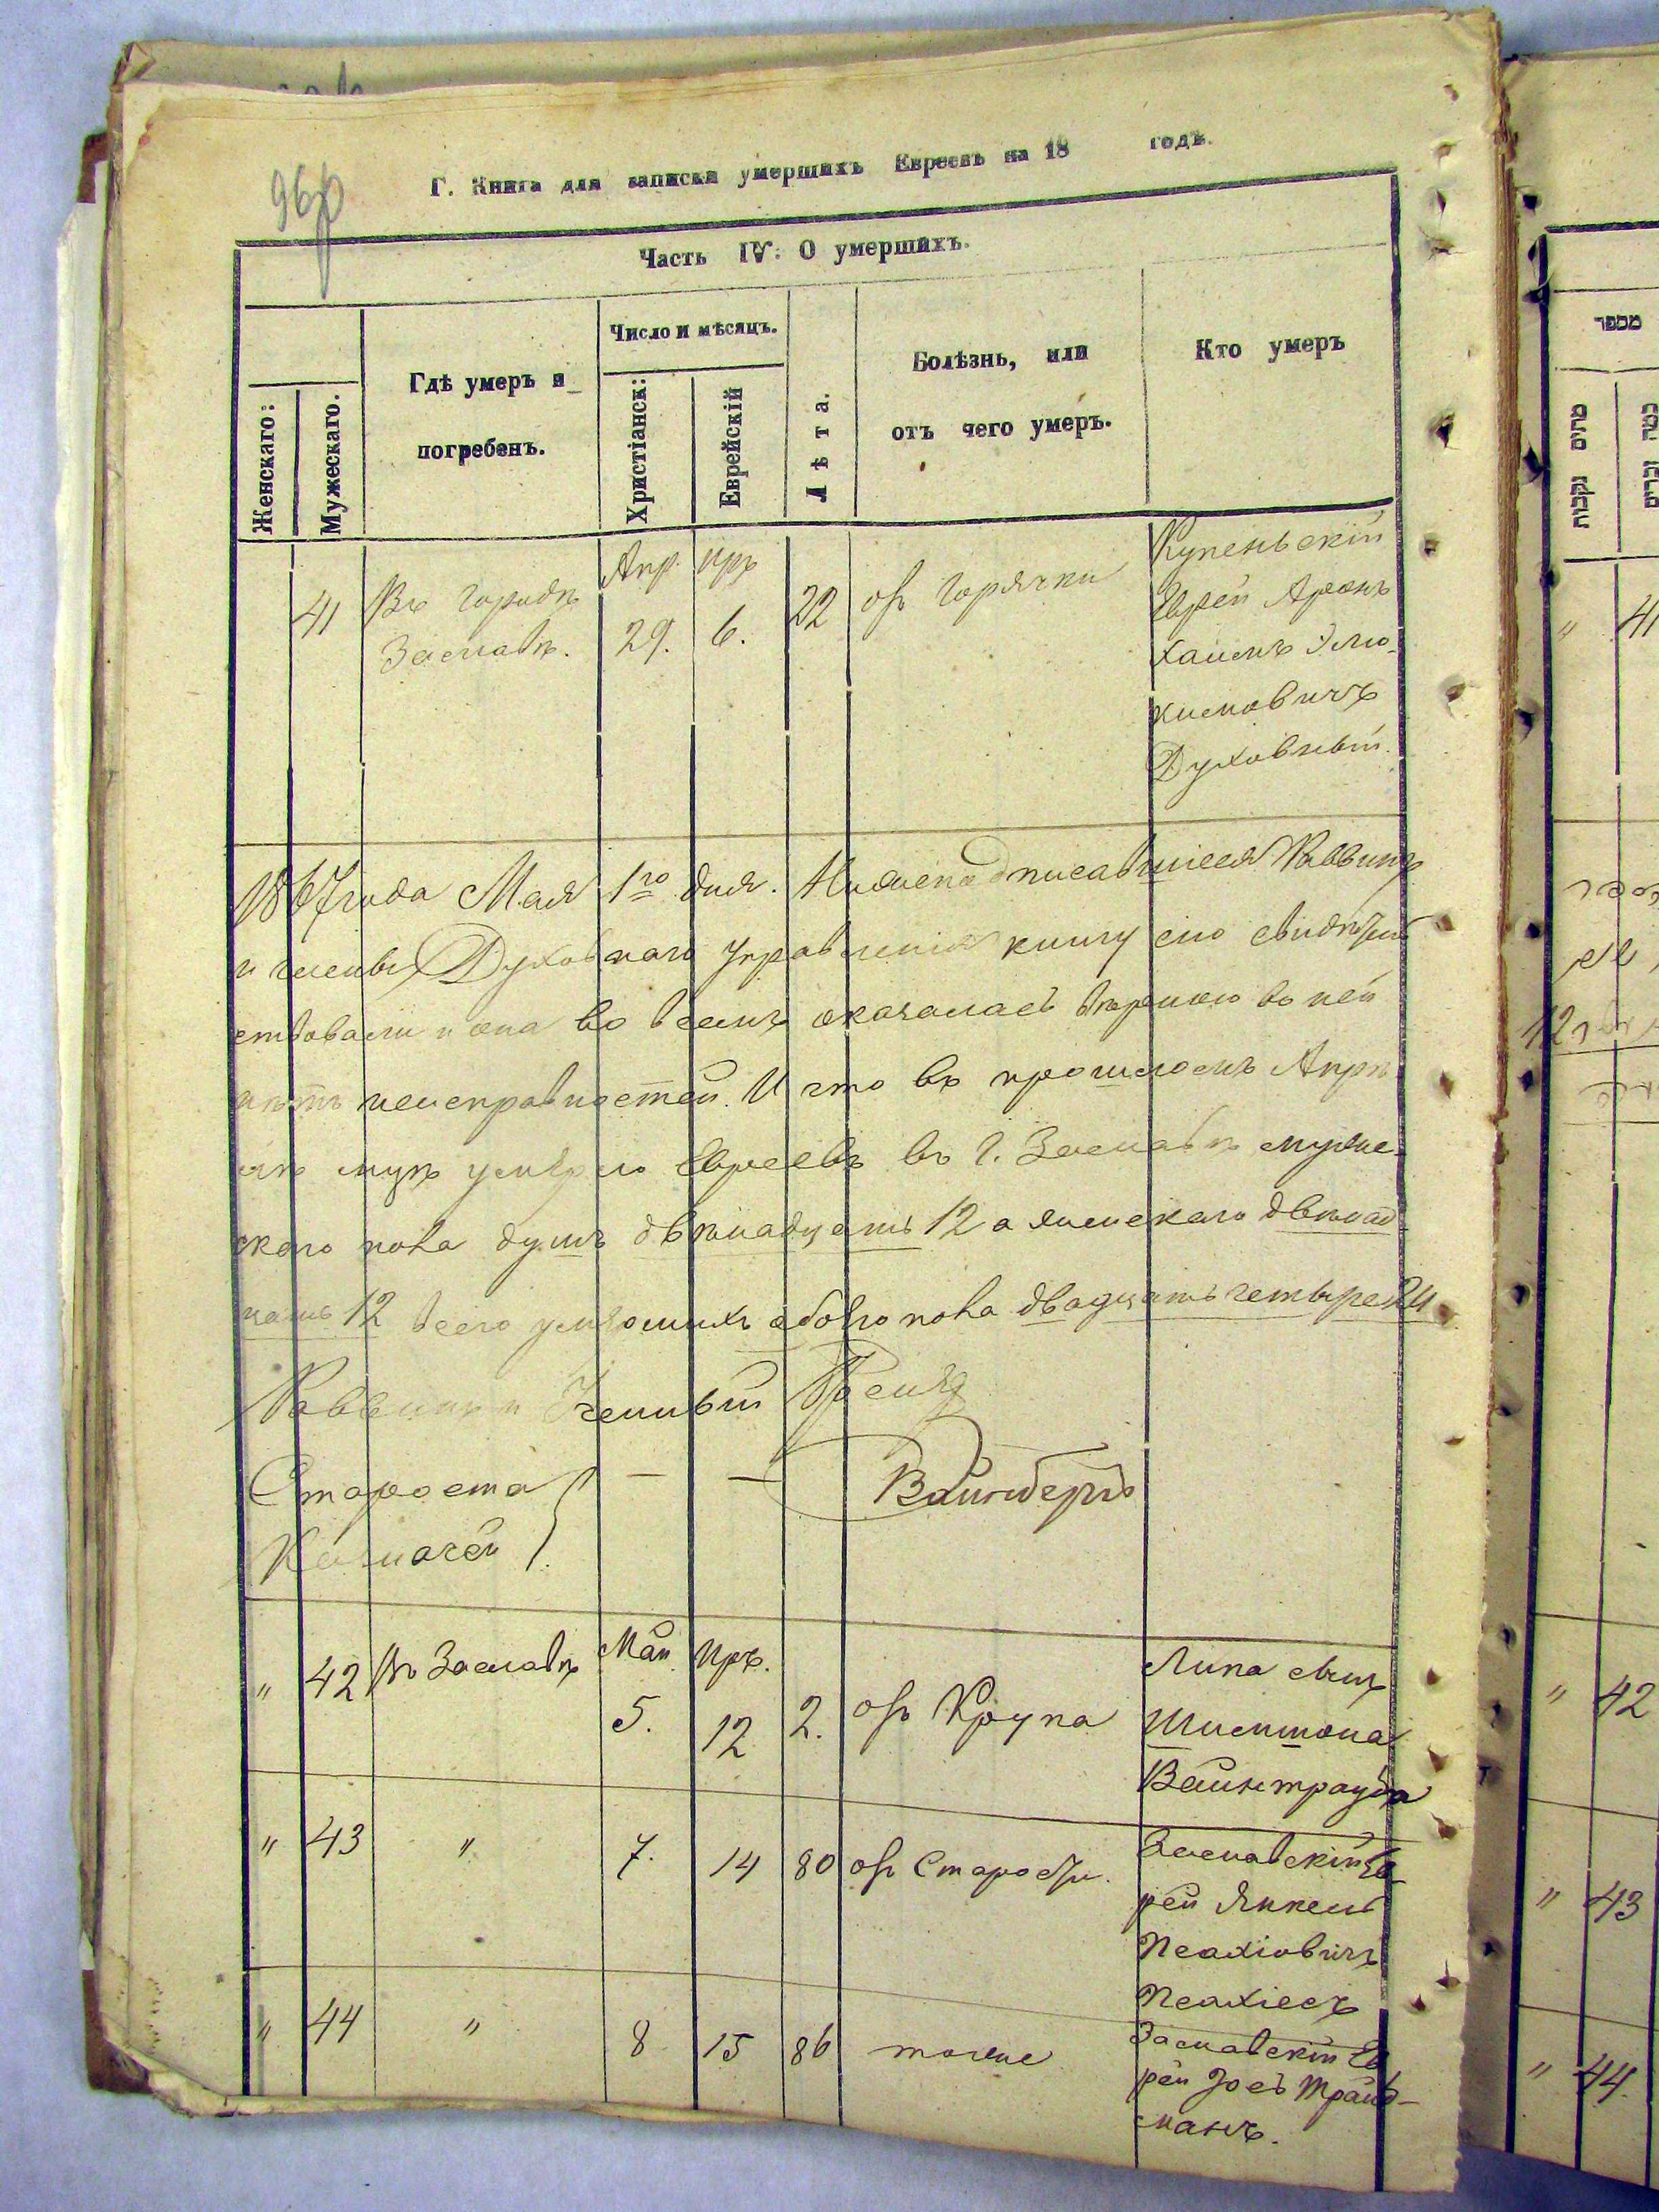 96
Г. Книга для записки умершихъ Евреевъ на 18 годъ.
Часть IV: О умершихъ.
Женскаго:
Мужескаго.
Гдѣ умеръ и
погребенъ.
Число и мѣсяцъ.
Христіанск:
Еврейскій
Лѣта.
Болѣзнь, или
отъ чего умеръ.
Кто умеръ
41
Въ городѣ
Заславѣ.
Апр.
29.
Иръ
6.
22
отъ горячки
Купеньскій
Еврей Аронъ
Хаимъ
Духовный.
1867 года Мая 1го дня. Нижеподписавшіеся Раввинъ
и члены Духовнаго Управленія книгу сію свидѣтель
ствовали и она во всемъ оказалась вѣрною во ней
нѣтъ неисправностей. И что въ прошломъ Апрѣ
лѣ мцѣ умерло Евреевъ въ г. Заславѣ муже-
скаго пола душъ двѣнадцать 12 а женскаго двѣнад
цать 12 всего умершихъ обоего пола двадцать четыре 24
Раввинъ и Ученый
Староста
Казначей
— —
Вайнбергъ
" 42 Въ Заславѣ
Май
5.
Иръ.
12
2.
отъ Крупа
Липа сынъ
Шимшона
Вайнтрауба
" 43 " 7. 14 80 отъ Старости.
Заславскій Ев-
рей Янкель
Пеахіовичъ
Пеахіесъ
" 44 " 8 15 86 тоже
Заславскій Ев
рей Іось Трайб-
манъ.
מספר
מתים נקבות
זכרים
" 41
12
" 42
" 43
" 44